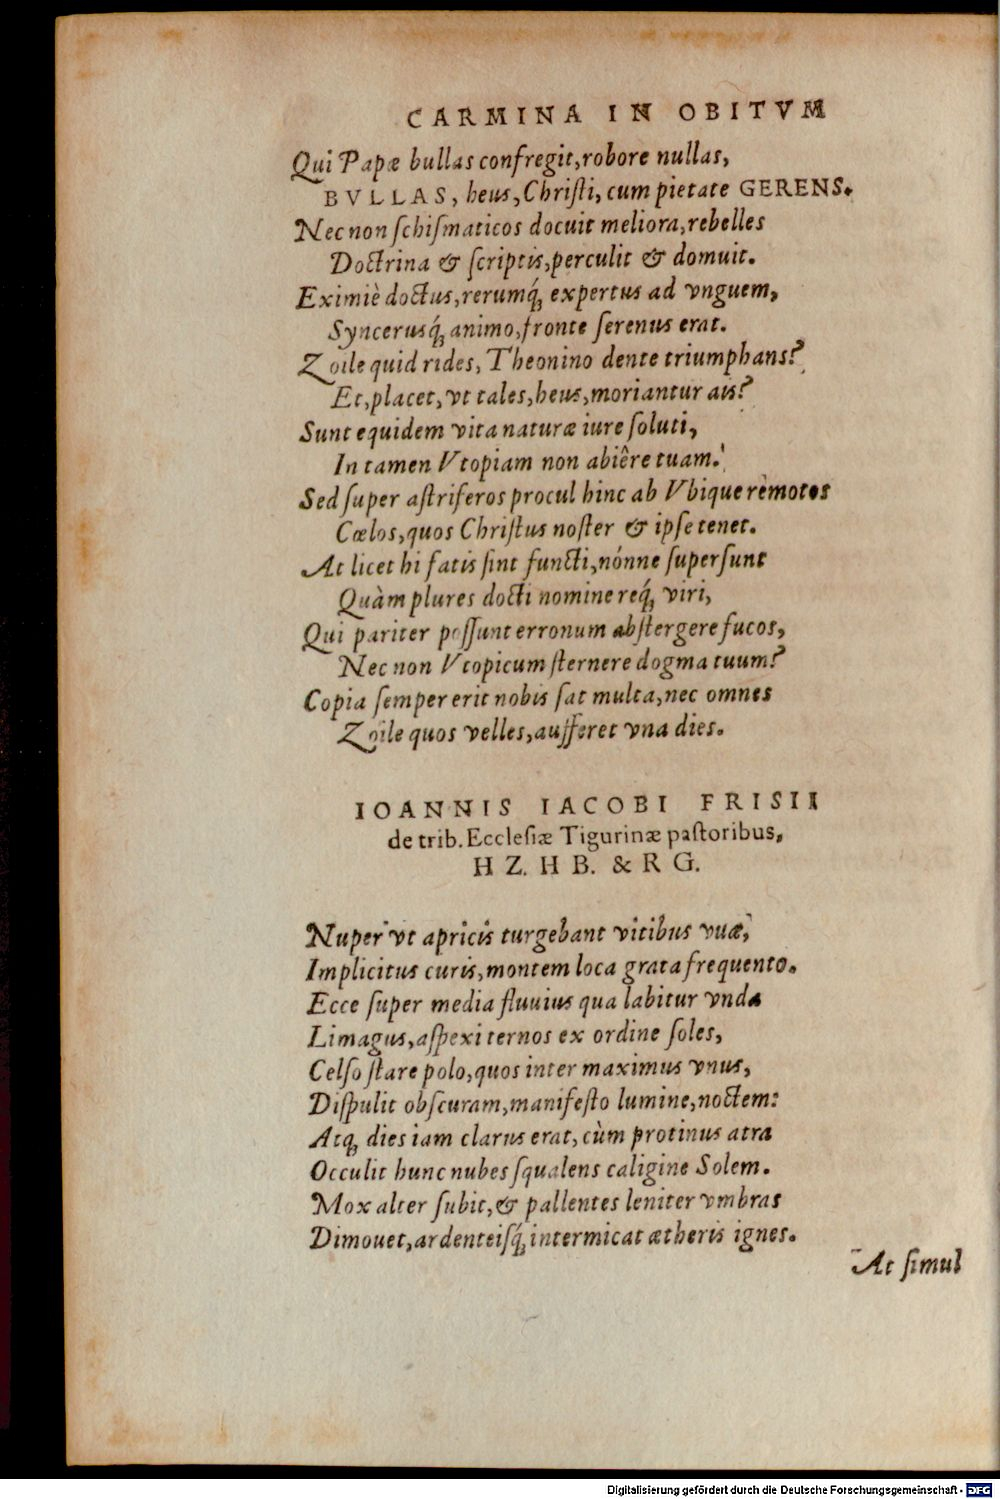 CARMINA IN OBITVM
Qui Papæ bullas confregit, robore nullas,
BVLLAS, heus, Chriſti, cum pietate GERENS.
Nec non ſchiſmaticos docuit meliora, rebelles
Doctrina & ſcriptis, perculit & domuit.
Eximiè doctus, rerumq́ꝫ expertus ad vnguem,
Syncerusq́ꝫ animo, fronte ſerenus erat.
Zoile quid rides, Theonino dente triumphans?
Et, placet, vt tales, heus, moriantur ais?
Sunt equidem vita naturæ iure ſoluti,
In tamen Vtopiam non abiêre tuam.
Sed ſuper aſtriferos procul hinc ab Vbique remotos
Cœlos, quos Chriſtus noſter & ipſe tenet.
At licet hi fatis ſint functi, nónne ſuperſunt
Quàm plures docti nomine req́ꝫ viri,
Qui pariter poſſunt erronum abſtergere fucos,
Nec non Vtopicum ſternere dogma tuum?
Copia ſemper erit nobis ſat multa, nec omnes
Zoile quos velles, aufferet vna dies.
IOANNIS IACOBI FRISII
de trib. Eccleſiæ Tigurinæ paſtoribus,
H Z. H B. & R G.
Nuper vt apricis turgebant vitibus vuæ,
Implicitus curis, montem loca grata frequento.
Ecce ſuper media fluuius qua labitur vnda
Limagus, aſpexi ternos ex ordine ſoles,
Celſo ſtare polo, quos inter maximus vnus,
Diſpulit obſcuram, manifeſto lumine, noctem:
Atqꝫ dies iam clarus erat, cùm protinus atra
Occulit hunc nubes ſqualens caligine Solem.
Mox alter ſubit, & pallentes leniter vmbras
Dimouet, ardenteiſq́ꝫ intermicat ætheris ignes.
At ſimul
Digitalisierung gefördert durch die Deutsche Forschungsgemeinschaft - DFG